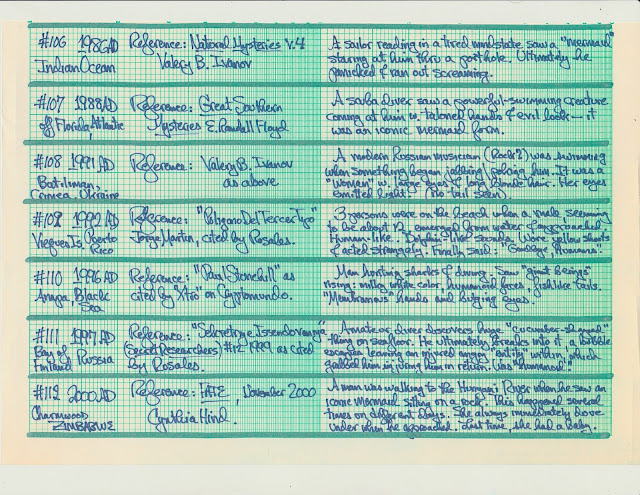 #106 1986AD Reference: Natural Mysteries v.4 A sailor reading in a tired mindstate saw a "mermaid"
Indian Ocean Valery B. Ivanov staring at him thru a porthole. Ultimately he
panicked & ran out screaming.
#107 1988AD Reference: Great Southern A scuba diver saw a powerful-swimming creature
off Florida, Atlantic Mysteries E. Randall Floyd coming at him w. taloned hands & evil look — it
was an iconic mermaid form.
#108 1991 AD Reference: Valery B. Ivanov A modern Russian musician (Rock?) was swimming
Bat-Liman, as above when something began jabbing, poking him. It was a
Crimea, Ukraine "woman" w. large eyes & long blonde hair. Her eyes
emitted light. (no tail seen)
#109 1992 AD Reference: Del Tercer Tipo" 3 persons were on the beach when a male, seeming
Vieques Is. Puerto Jorge Martin, cited by Rosales. to be about 19, emerged from water & approached.
Rico Human-like. Dolphin-like sounds. Wore yellow shorts
& acted strangely. Finally said: "Goodbye, Humans.
#110 1996 AD Reference: "Paul Stonehill" as Men hunting sharks & diving. Saw "giant beings"
Anapa, Black cited by "Xtro" on Cryptomundo. rising: milky white color, humanoid faces, fishlike tails.
Sea "Membranous" hands and bulging eyes.
#111 1997 AD Reference: "Sekretnye Issledovaniya" Amateur diver discovers huge "cucumber-shaped"
Bay of Russia (Secret Researchers) #12 1999 as cited thing on seafloor. He ultimately breaks into it, a bubble
Finland by Rosales. escaping leaving an injured angry entity within, which
jabbed him injuring him in return. Was "humanoid".
#112 2000AD Reference: FATE, November 2000 A man was walking to the Hunyani River when he saw an
Charmwood Cynthia Hind. iconic mermaid sitting on a rock. This happened several
ZIMBABWE times on different days. She always immediately dove
under when he approached. Last time, she had a baby.